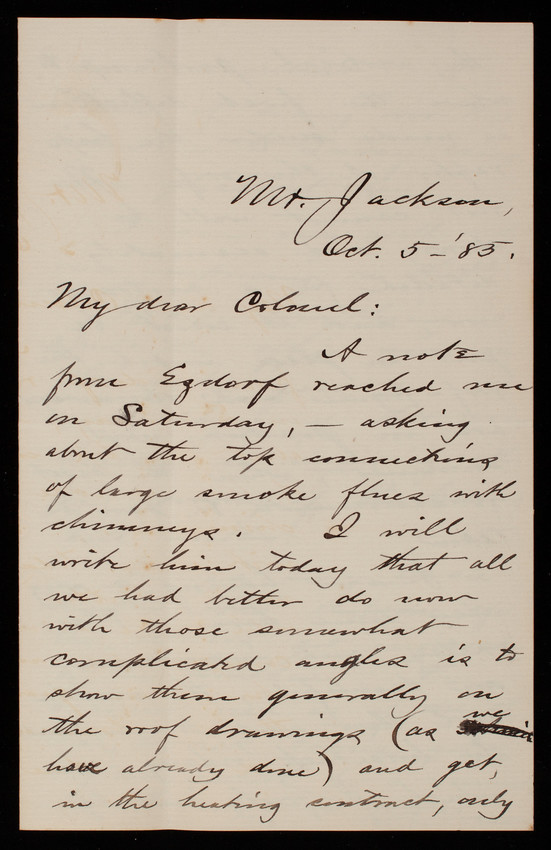 Mt. Jackson,
Oct. 5 - '85.
My dear Colonel:
A note
from Ezdorf reached me
on Saturday, — asking
about the top connecting
of large smoke flues with
chimneys. I will
write him today that all
we had better do now
with those somewhat
complicated angles is to
show them generally on
we
the roof drawings (as
have already done) and get,
in the heating contract, only